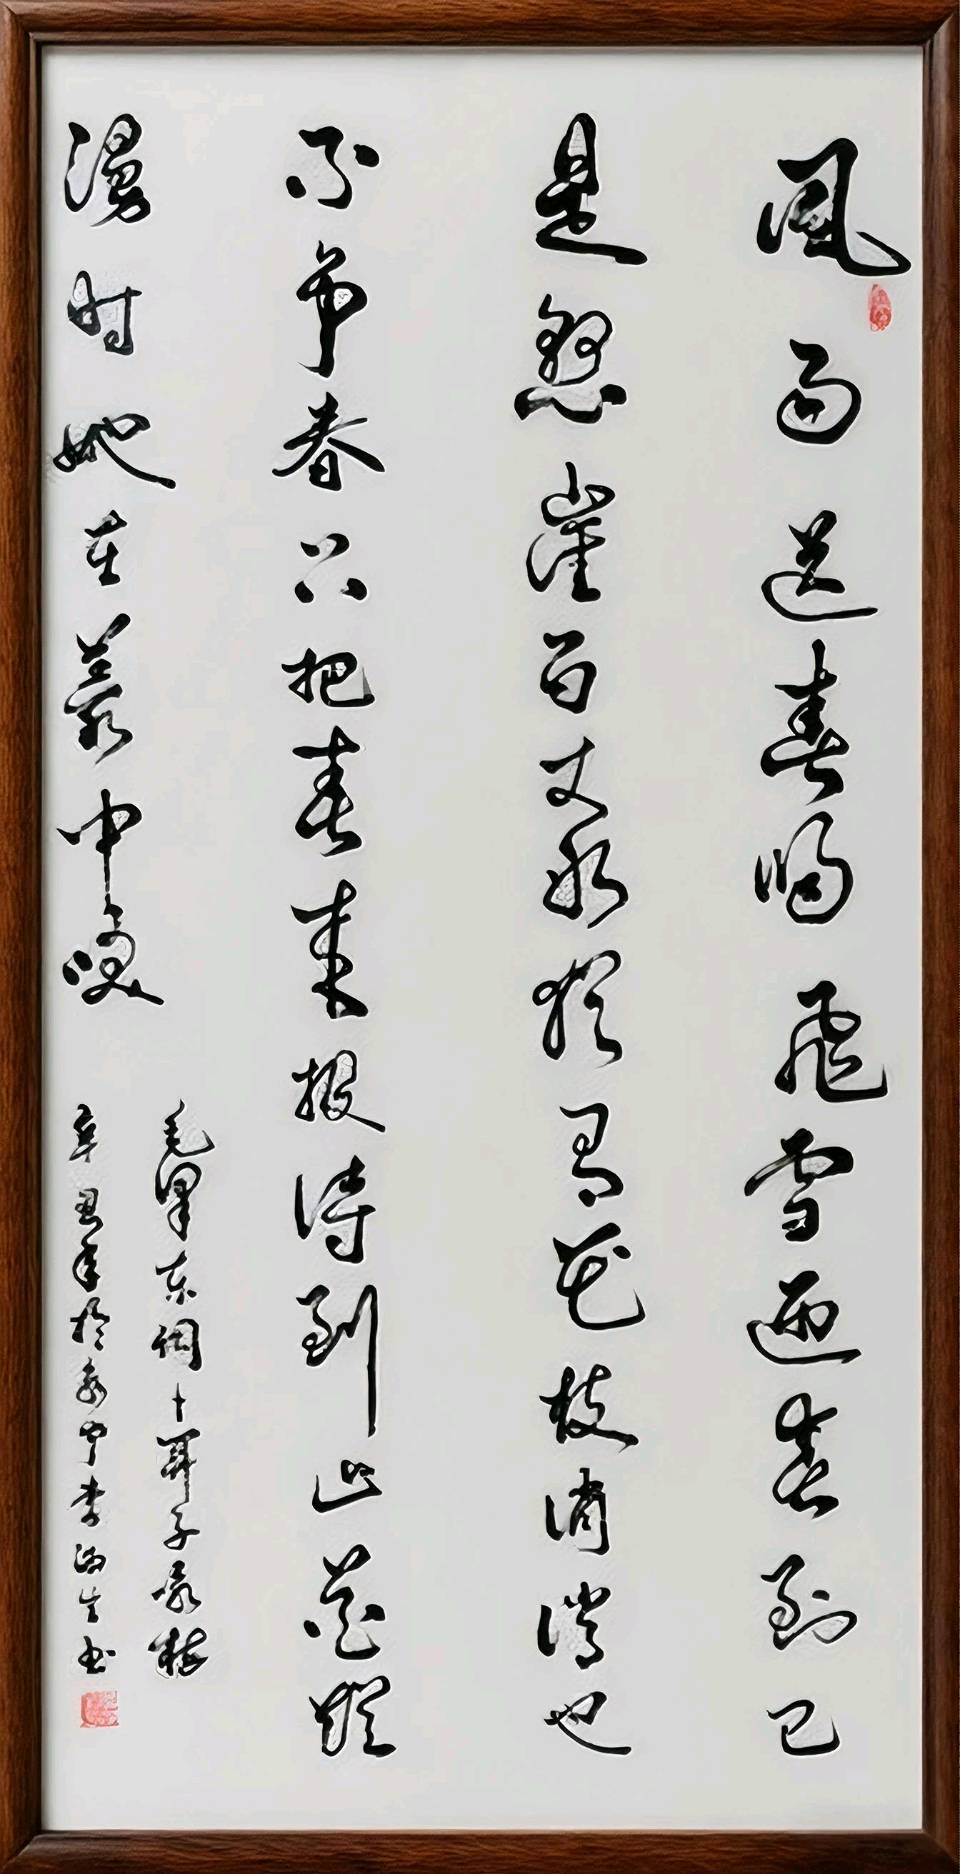 風雨送春歸飛雪迎春到已
是懸崖百丈冰猶有花枝俏俏也
不爭春只把春來報待到山花爛
漫时她在叢中咲
毛澤東詞卜算子咏梅
辛丑年於宁李生书